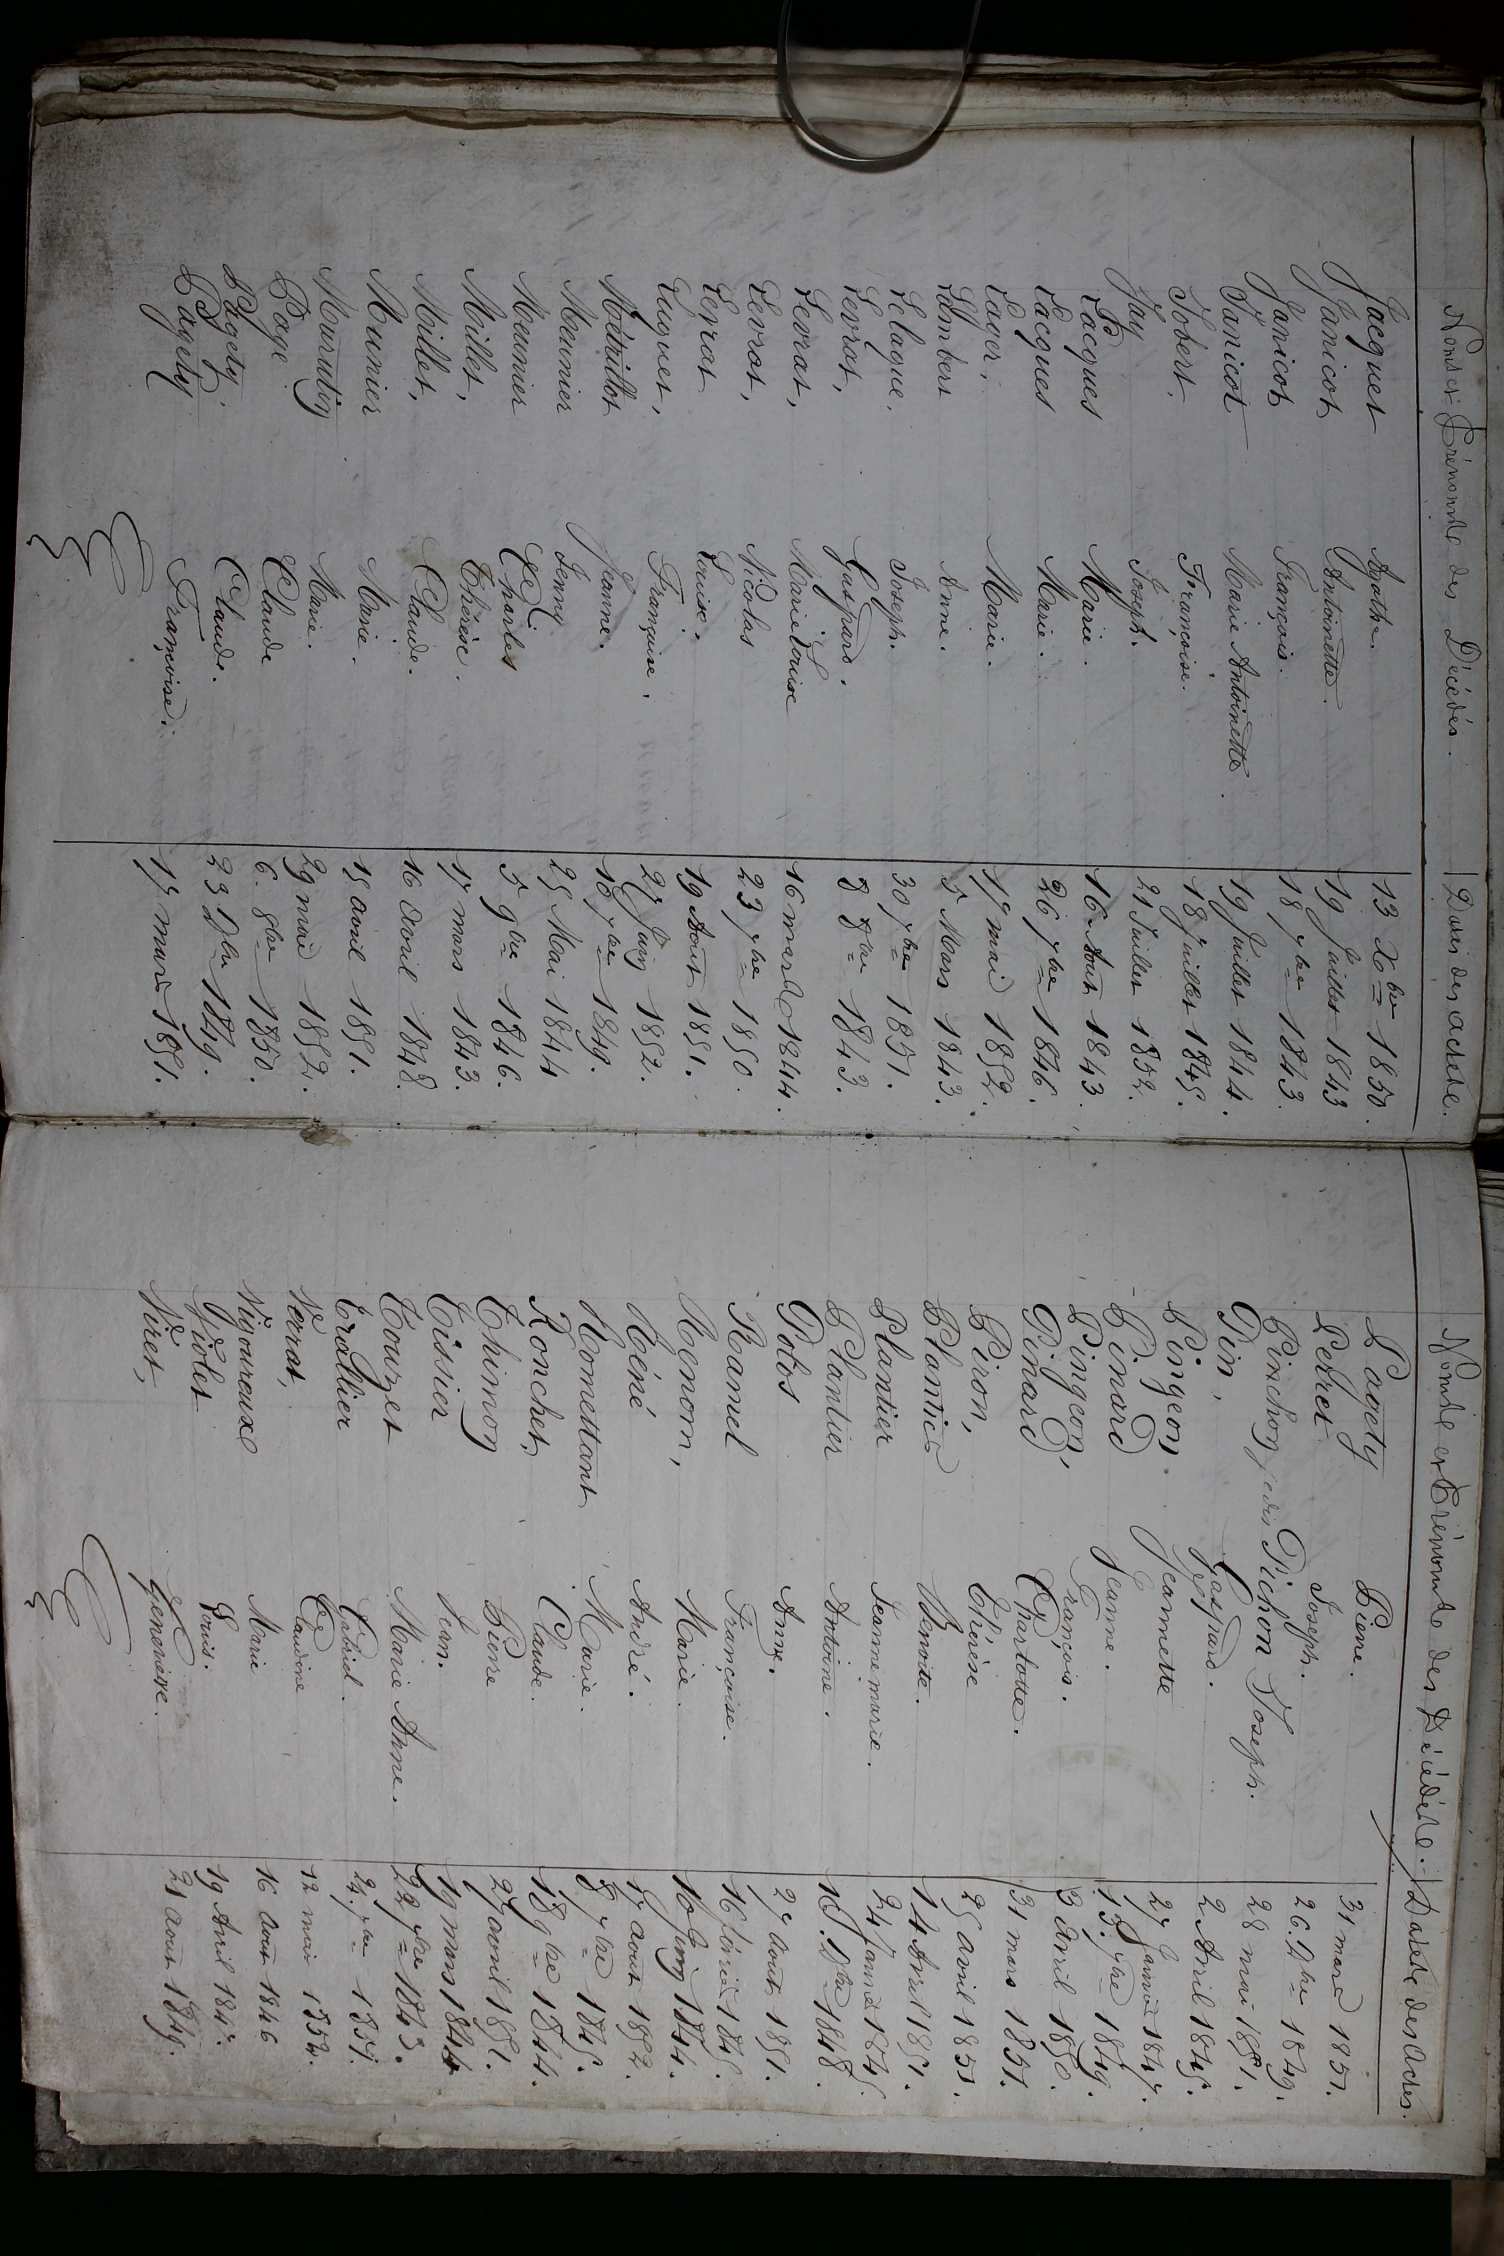 Noms et Prénoms des Décédés. Dates des actes.
Jacquet Agathe. 13 Xbre 1850.
Janicot Antoinette. 19 Juillet 1843
Janicot François. 18 7bre 1843.
Janicot Marie Antoinette. 19 Juillet 1844.
Jobert. Françoise. 18 Juillet 1845.
Jay Joseph. 21 Juillet 1852.
Lacques Marie. 16 Aout 1843.
Lacques Marie. 26 7bre 1846.
Lager, Marie. 17 mai 1852.
Lambert Anne. 5 Mars 1843.
Lelague. Joseph. 30 7bre 1851.
Levrat, Gaspard. 8 8bre 1843.
Levrat, Marie Louise 16 mars 1844.
Levrat, Nicolas 23 7bre 1850.
Levrat Louise. 19 Aout 1851.
Luguet, Françoise. 27 Juin 1852.
Métrillot Jeanne. 10 7bre 1849.
Meunier Jenny 25 Mai 1844
Meunier Charles 5 9bre 1846.
Millet, Thérèse. 17 mars 1843.
Millet, Claude. 16 avril 1848.
Munier Marie. 15 avril 1851.
Murutin Marie. 29 mai 1852.
Page Claude 6. 8bre 1850.
Pagety. Claude. 23 Xbre 1849.
Pagety Françoise. 17 mars 1851.
Noms et Prénoms des Décédés. Dates des Actes.
Pagety Pierre. 31 mars 1851.
Perret Joseph. 26. Xbre 1849.
Pinchon jadis Pichon Joseph. 28 mai 1851.
Pin, Gaspard. 2 Avril 1845.
Pingeon, Jeannette 27 Janvier 1847.
Pinard Jeanne. 13. 7bre 1849.
Pingeon, François. 3 Avril 1850.
Pinard Charlotte. 31 mars 1851.
Piron, Thérèse 25 avril 1851.
Plantier Benoite. 14 Avril 1851.
Plantier Jeanne marie. 24 Janvier 1845.
Plantier Antoine. 10. Xbre 1848.
Potos Anne. 27 aout 1851.
Ramel Françoise. 16 février 1845.
Renom, Marie. 10 Juin 1844.
Réné André. 17 aout 1852.
Romettant Marie. 8 7bre 1845.
Ronchet, Claude. 18 9bre 1844.
Thimon Pierre 27 avril 1851.
Tissier Jean. 19 mars 1844
Touzet Marie Anne. 22 7bre 1843.
Trallier Gabriel. 24. 7bre 1851.
Verrat, Claudine 12 mai 1852.
Vigoureux Marie 16 aout 1846
Violet Louis. 19 Avril 1847.
Viret, Geneviève. 21 aout 1849.